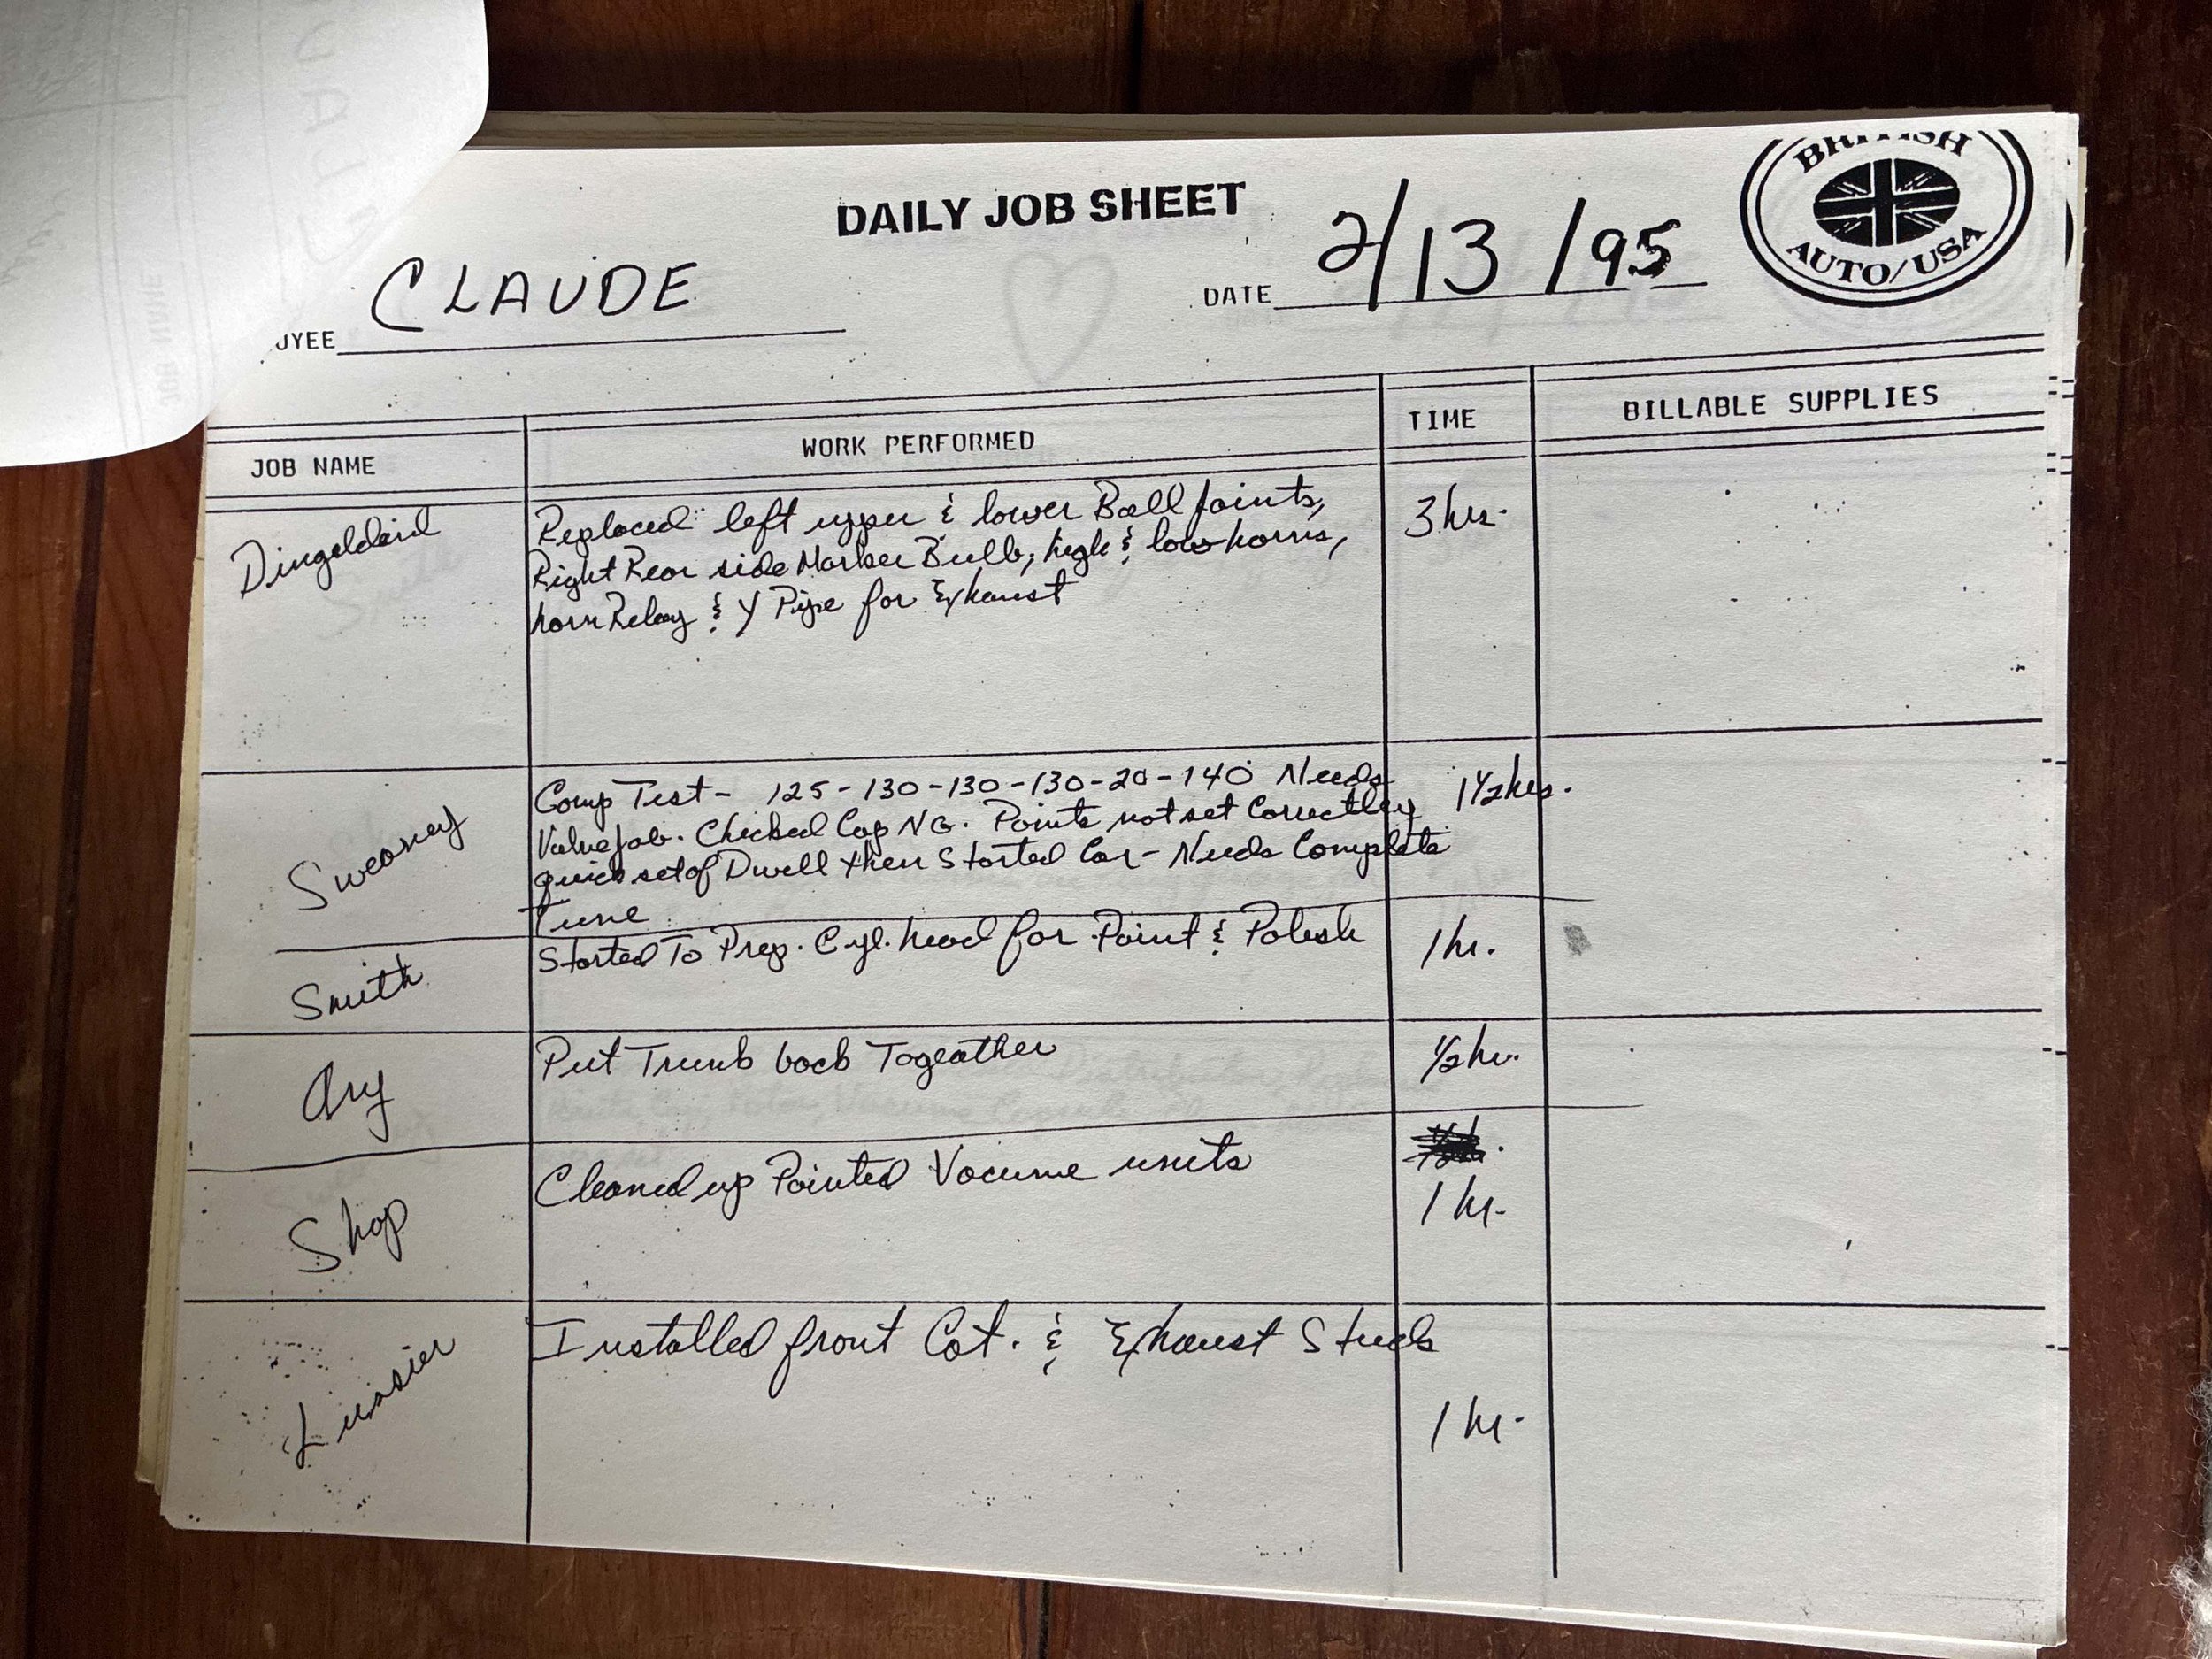 DAILY JOB SHEET
BRITISH
AUTO/USA
OYEE CLAUDE
DATE 2/13/95
JOB NAME
WORK PERFORMED
TIME
BILLABLE SUPPLIES
Replaced left upper & lower Ball Joints,
3 hrs.
Right Rear side Marker Bulb, high & low horns,
horn Relay & Y Pipe for Exhaust
Sweaney
Comp Test - 125-130-130-130-20-140 Needs
1 1/2 hrs.
Valve job. Checked Cap NG. Points not set Correctley
quick set of Dwell then Started Car - Needs Complete
tune
Smith
Started To Prep. Cyl. head for Paint & Polish
1 hr.
Ary
Put Trunk back Togeather
1/2 hr.
Shop
Cleaned up Painted Vacume units
1 hr.
Lussier
Installed front Cat. & Exhaust Studs
1 hr.